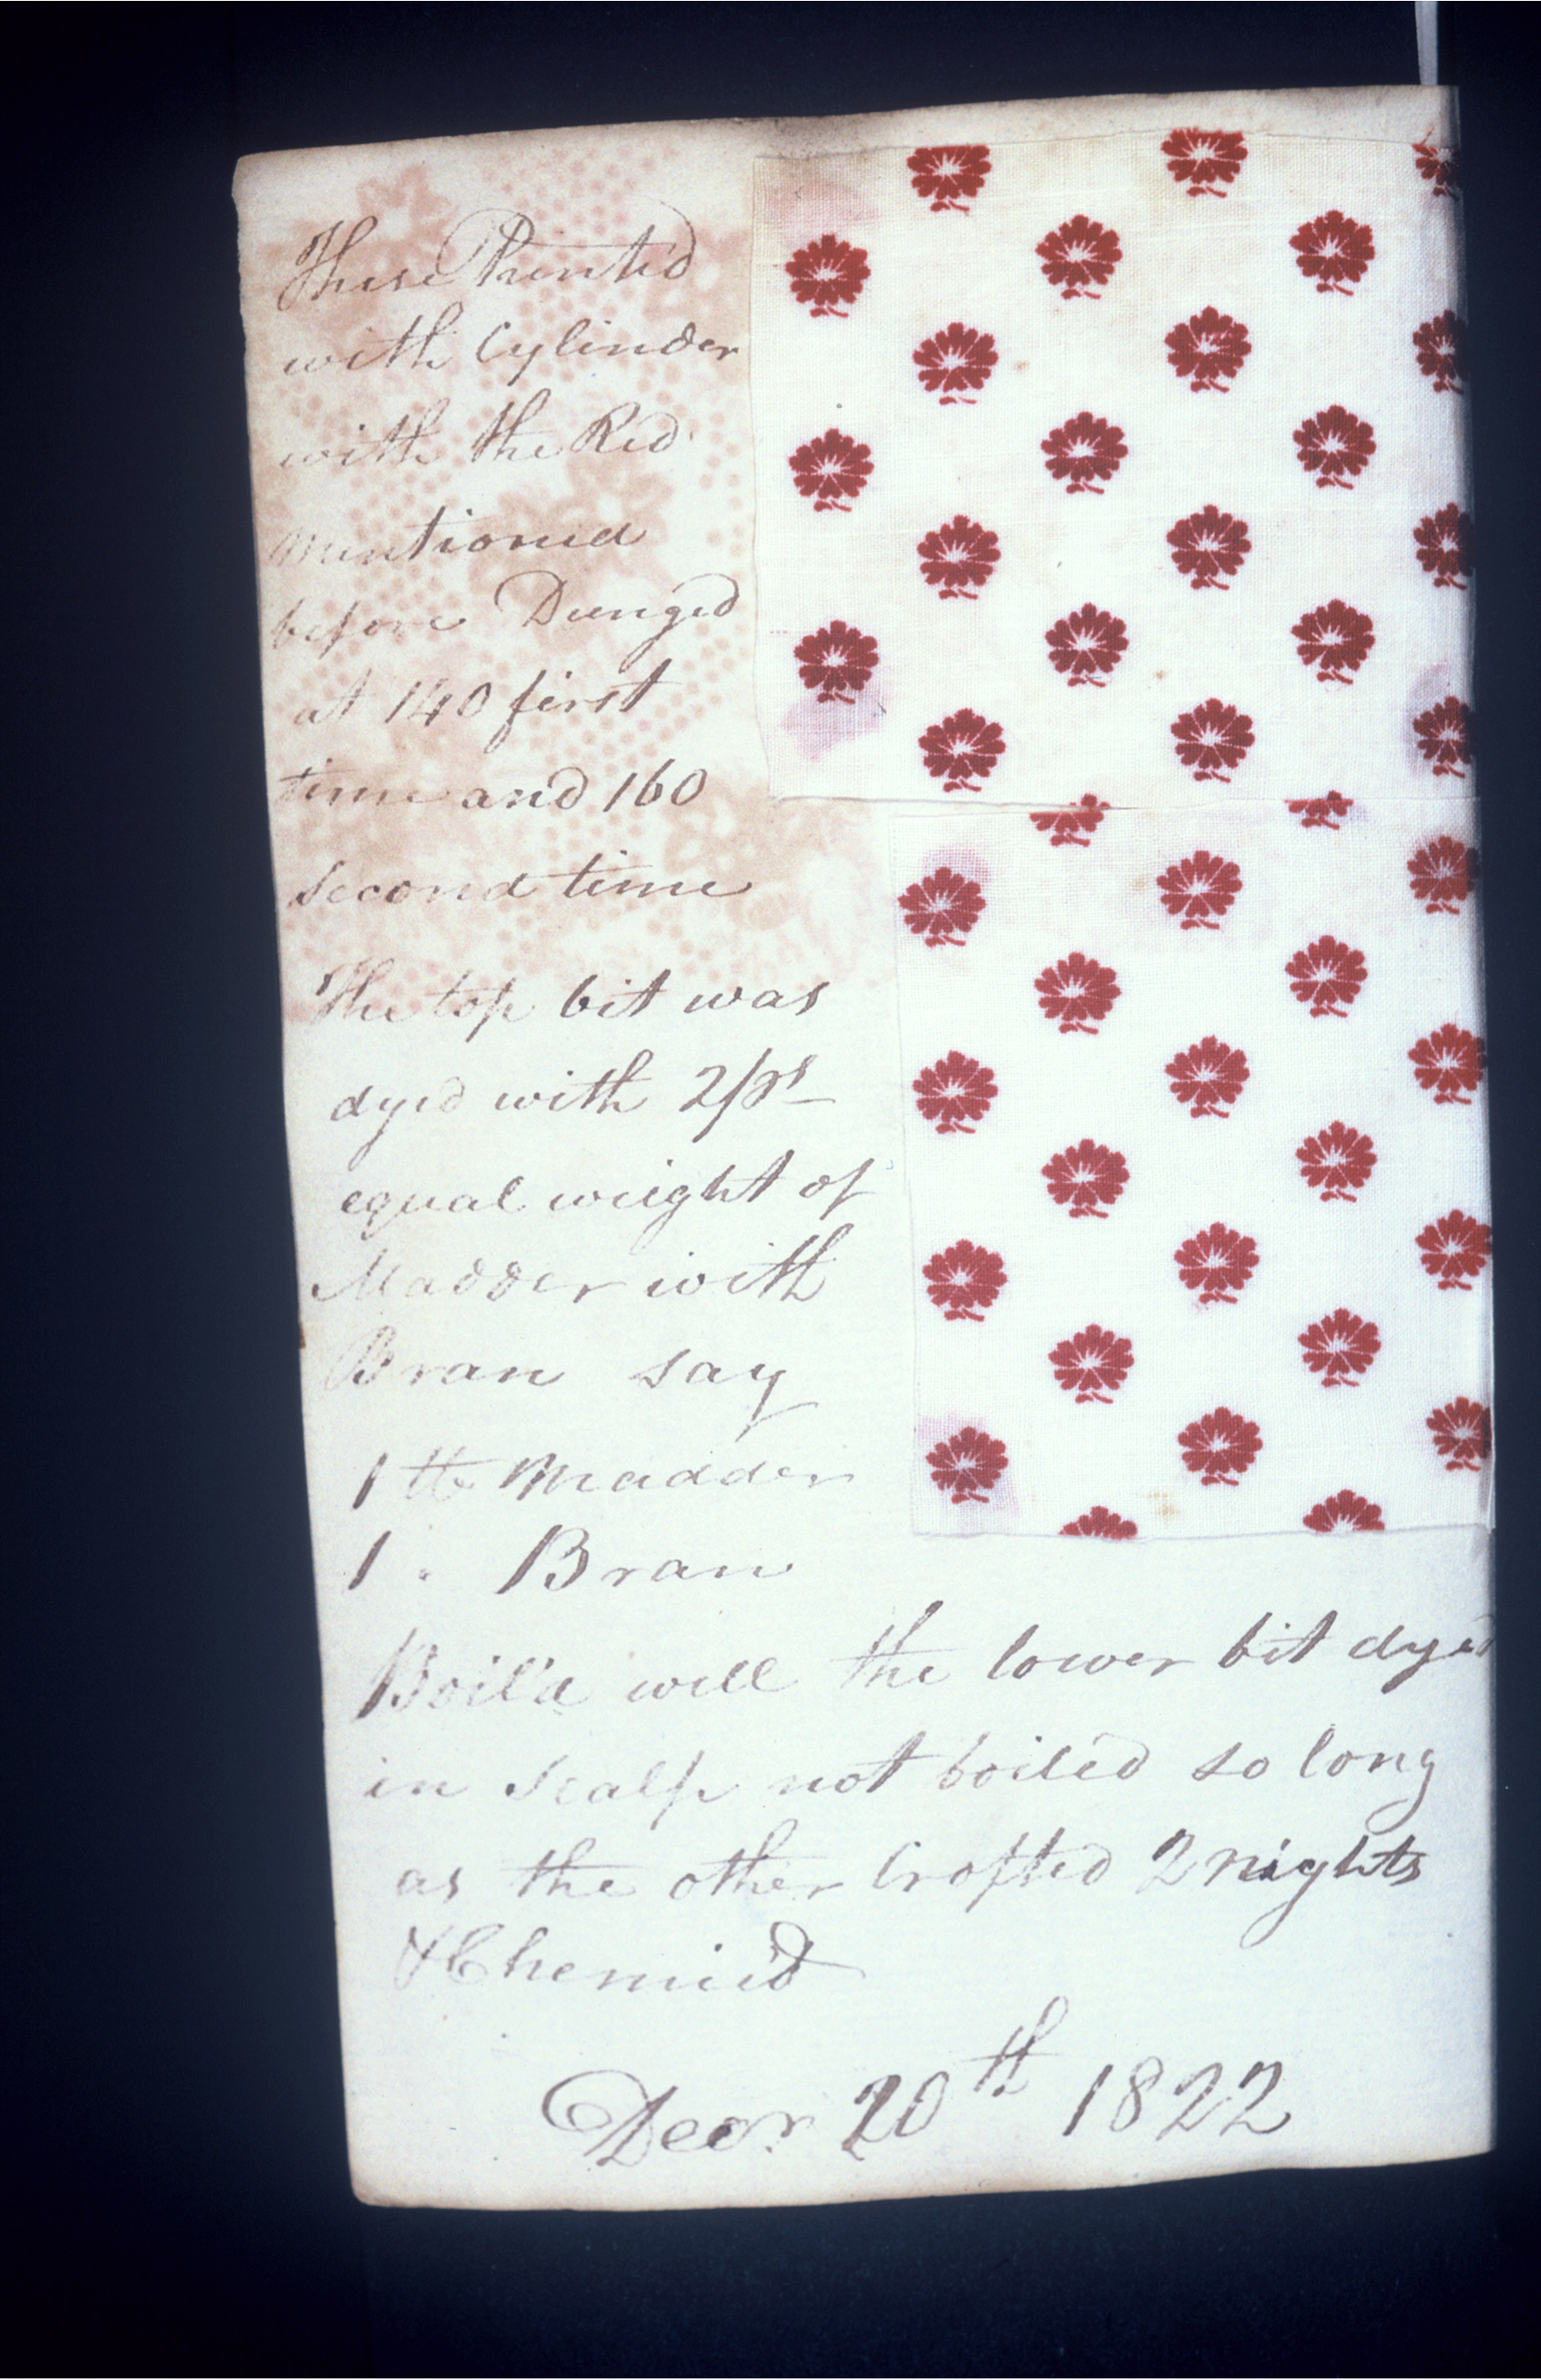 These Printed
with Cylinder
with the Red
mentioned
before Dunged
at 140 first
time and 160
second time
The top bit was
dyed with
equal weight of
Madder with
Bran say
1 lb Madder
1 . Bran
Boil'd well the lower bit dyed
in Scalp not boiled so long
as the other Crofted 2 nights
& Chemic'd
Decr 20th 1822